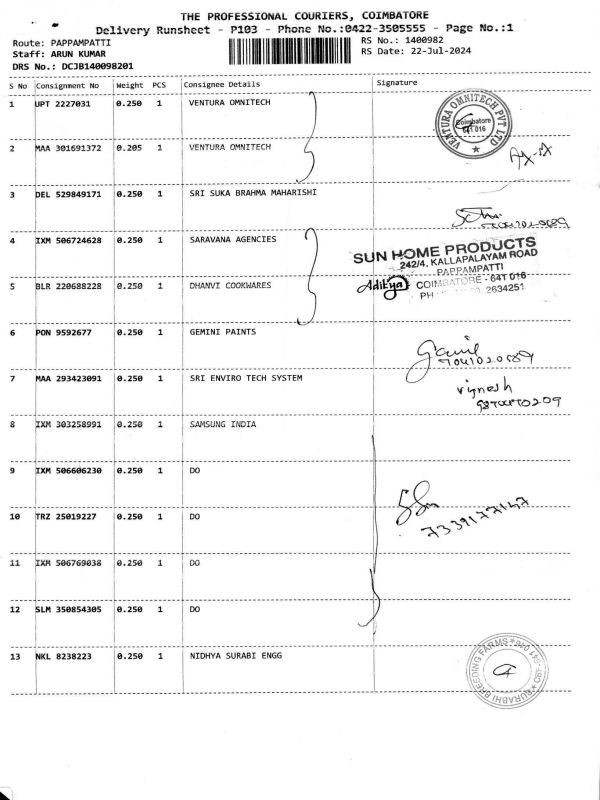 THE PROFESSIONAL COURIERS, COIMBATORE
Delivery Runsheet - P103 - Phone No.:0422-3505555 - Page No.:1
Route: PAPPAMPATTI
Staff: ARUN KUMAR
DRS No.: DCJB140098201
RS No.: 1400982
RS Date: 22-Jul-2024
S No Consignment No Weight PCS Consignee Details Signature
1 UPT 2227031 0.250 1 VENTURA OMNITECH
VENTURA OMNITECH PVT LTD
Coimbatore
641 016
2 MAA 301691372 0.205 1 VENTURA OMNITECH
3 DEL 529849171 0.250 1 SRI SUKA BRAHMA MAHARISHI
4 IXM 506724628 0.250 1 SARAVANA AGENCIES
SUN HOME PRODUCTS
242/4, KALLAPALAYAM ROAD
PAPPAMPATTI
Aditya COIMBATORE - 641 016
PH 2634251
5 BLR 220688228 0.250 1 DHANVI COOKWARES
6 PON 9592677 0.250 1 GEMINI PAINTS
7 MAA 293423091 0.250 1 SRI ENVIRO TECH SYSTEM
vignesh
8 IXM 303258991 0.250 1 SAMSUNG INDIA
9 IXM 506606230 0.250 1 DO
10 TRZ 25019227 0.250 1 DO
7339177147
11 IXM 506769038 0.250 1 DO
12 SLM 350854305 0.250 1 DO
13 NKL 8238223 0.250 1 NIDHYA SURABI ENGG
SURABHI BREEDING FARMS